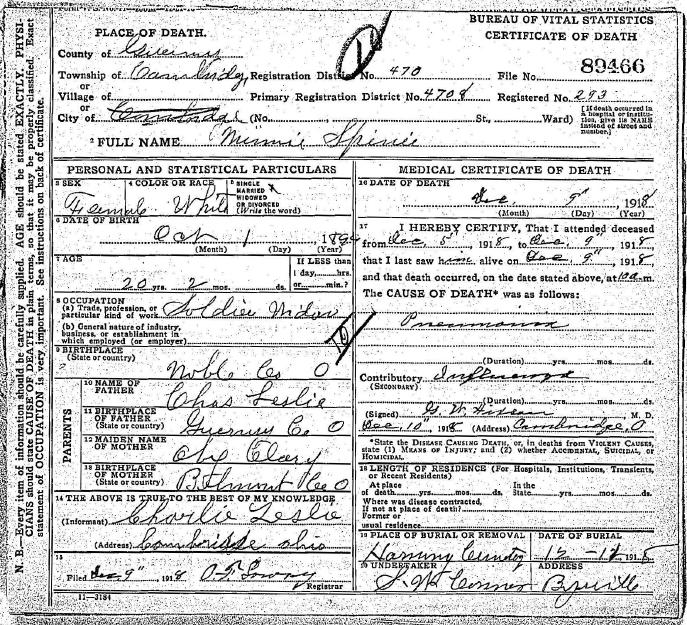 BUREAU OF VITAL STATISTICS
CERTIFICATE OF DEATH
PLACE OF DEATH.
County of Guernsey
Township of Cambridge, Registration District No. 470 File No. 89466
or
Village of Primary Registration District No. 4708 Registered No. 293
or
City of Cambridge (No. St., Ward)
[If death occurred in a hospital or institution, give its NAME instead of street and number.]
2 FULL NAME Minnie
PERSONAL AND STATISTICAL PARTICULARS
3 SEX
Female
4 COLOR OR RACE
White
5 SINGLE
MARRIED
WIDOWED
OR DIVORCED
(Write the word)
6 DATE OF BIRTH
Oct 1
(Month) (Day) (Year)
7 AGE
20 yrs. 2 mos. ds.
If LESS than
1 day,....hrs.
or....min.?
8 OCCUPATION
(a) Trade, profession, or
particular kind of work Soldier
(b) General nature of industry,
business, or establishment in
which employed (or employer)
9 BIRTHPLACE
(State or country)
Noble Co O
PARENTS
10 NAME OF
FATHER
Chas Leslie
11 BIRTHPLACE
OF FATHER
(State or country)
Guernsey Co O
12 MAIDEN NAME
OF MOTHER
Clary
13 BIRTHPLACE
OF MOTHER
(State or country)
Belmont Co O
14 THE ABOVE IS TRUE TO THE BEST OF MY KNOWLEDGE
(Informant) Charlie Leslie
(Address) Cambridge Ohio
15
Filed Dec 9", 1918
Registrar
11-3184
MEDICAL CERTIFICATE OF DEATH
16 DATE OF DEATH
Dec. 9", 1918
(Month) (Day) (Year)
17 I HEREBY CERTIFY, That I attended deceased
from Dec. 5", 1918, to Dec. 9", 1918
that I last saw h alive on Dec. 9", 1918
and that death occurred, on the date stated above, at m.
The CAUSE OF DEATH* was as follows:
Pneumonia
(Duration) yrs. mos. ds.
Contributory Influenza
(SECONDARY)
(Duration) yrs. mos. ds.
(Signed) G. W. M. D.
Dec. 10", 1918 (Address) Cambridge, O
*State the DISEASE CAUSING DEATH, or, in deaths from VIOLENT CAUSES,
state (1) MEANS OF INJURY; and (2) whether ACCIDENTAL, SUICIDAL, or
HOMICIDAL.
18 LENGTH OF RESIDENCE (For Hospitals, Institutions, Transients,
or Recent Residents)
At place In the
of death....yrs....mos....ds. State....yrs....mos....ds.
Where was disease contracted,
if not at place of death?
Former or
usual residence
19 PLACE OF BURIAL OR REMOVAL
DATE OF BURIAL
12
20 UNDERTAKER
ADDRESS
N. B.—Every item of information should be carefully supplied. AGE should be stated EXACTLY. PHYSI-
CIANS should state CAUSE OF DEATH in plain terms, so that it may be properly classified. Exact
statement of OCCUPATION is very important. See instructions on back of certificate.